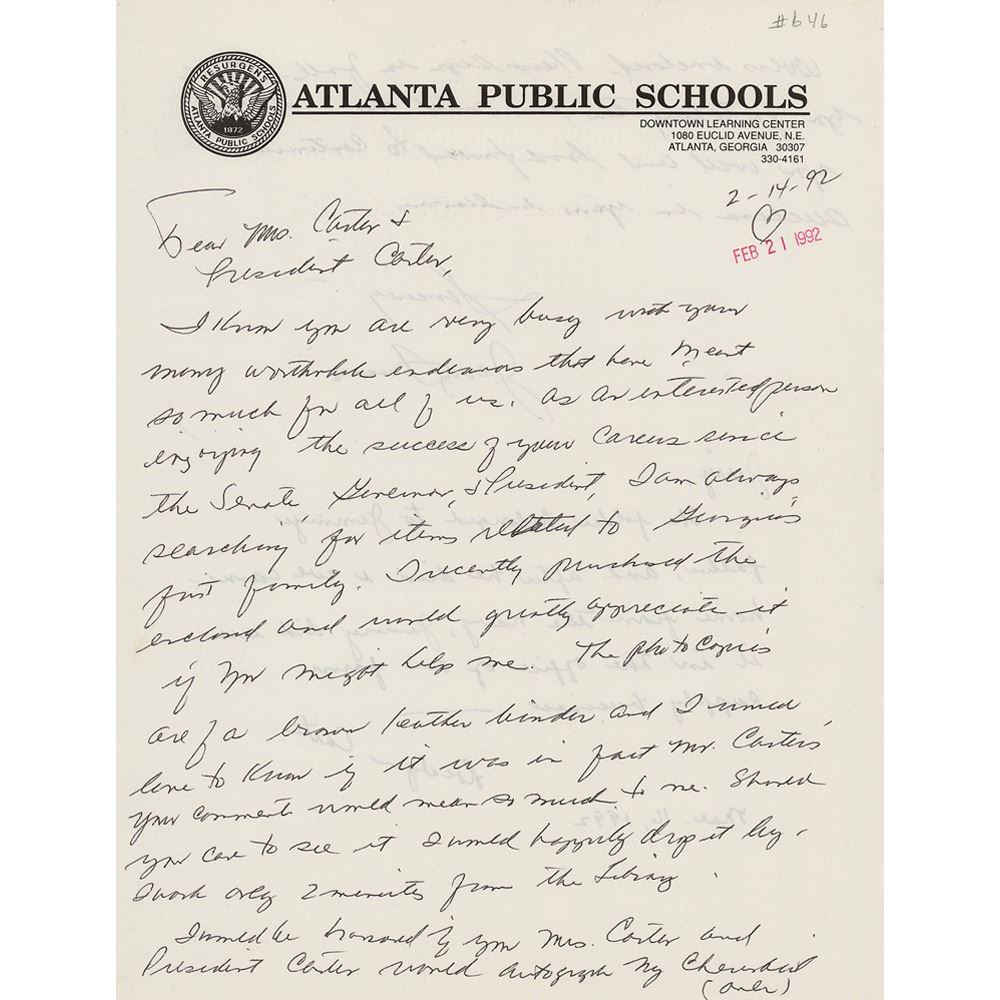 #646
RESURGENS
1872
ATLANTA PUBLIC SCHOOLS
ATLANTA PUBLIC SCHOOLS
DOWNTOWN LEARNING CENTER
1080 EUCLID AVENUE, N.E.
ATLANTA, GEORGIA 30307
330-4161
2-14-92
FEB 21 1992
Dear Mrs. Carter &
President Carter,
I know you are very busy with your
many worthwhile endeavors that have meant
so much for all of us. As an interested person
enjoying the success of your careers since
the Senate, Governor, & President, I am always
searching for items related to Georgia's
first family. I recently purchased the
enclosed and would greatly appreciate it
if you might help me. The photocopies
are of a brown leather binder and I would
love to know if it was in fact Mr. Carter's
your comments would mean so much to me. Should
you care to see it I would happily drop it by.
I work only 2 minutes from the Library.
I would be honored if you Mrs. Carter and
President Carter would autograph my cherished
(over)